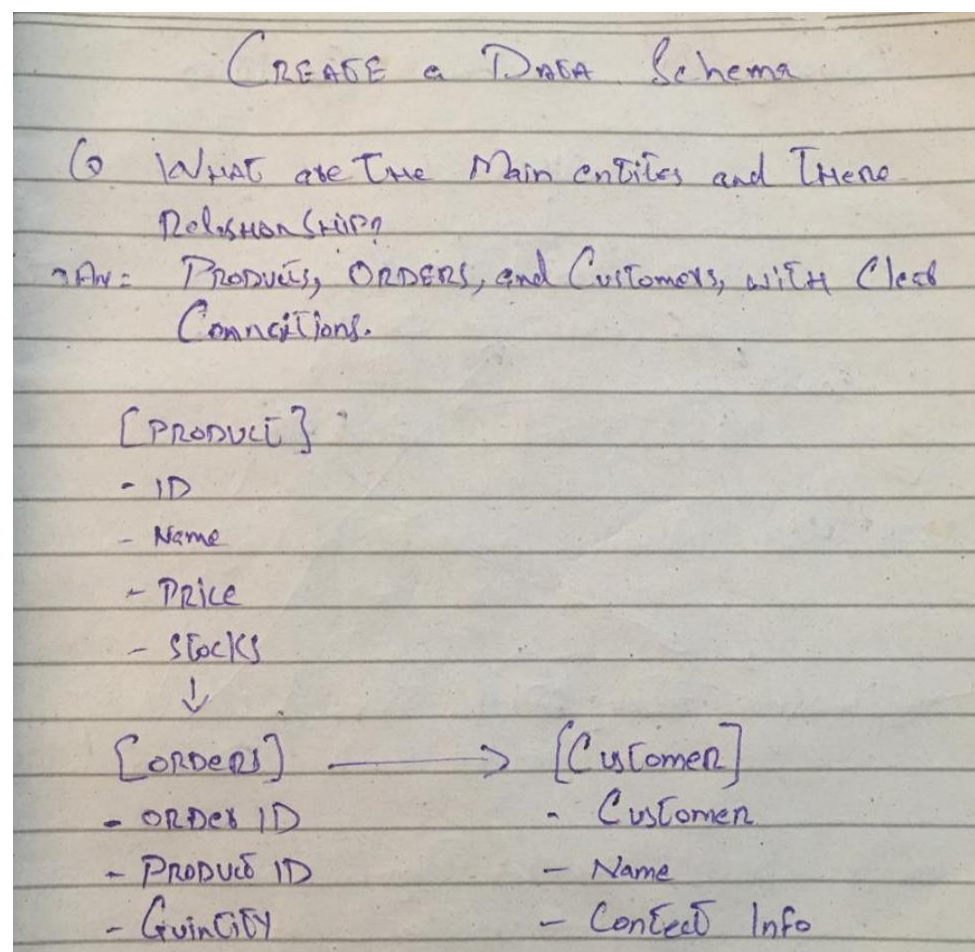 CREATE a DATA Schema
Q WHAT are THe Main entites and THere
RelasHonSHiP?
An= PRODUCTS, ORDERS, and CusTomers, wiTH Clear
ConnciTions.
[PRODUCT]
- ID
- Name
- PRice
- STocks
↓
[ORDERS] → [CusTomeR]
- ORDer ID - CusTomeR
- PRODUCT ID - Name
- QuinTiTY - ConTect Info